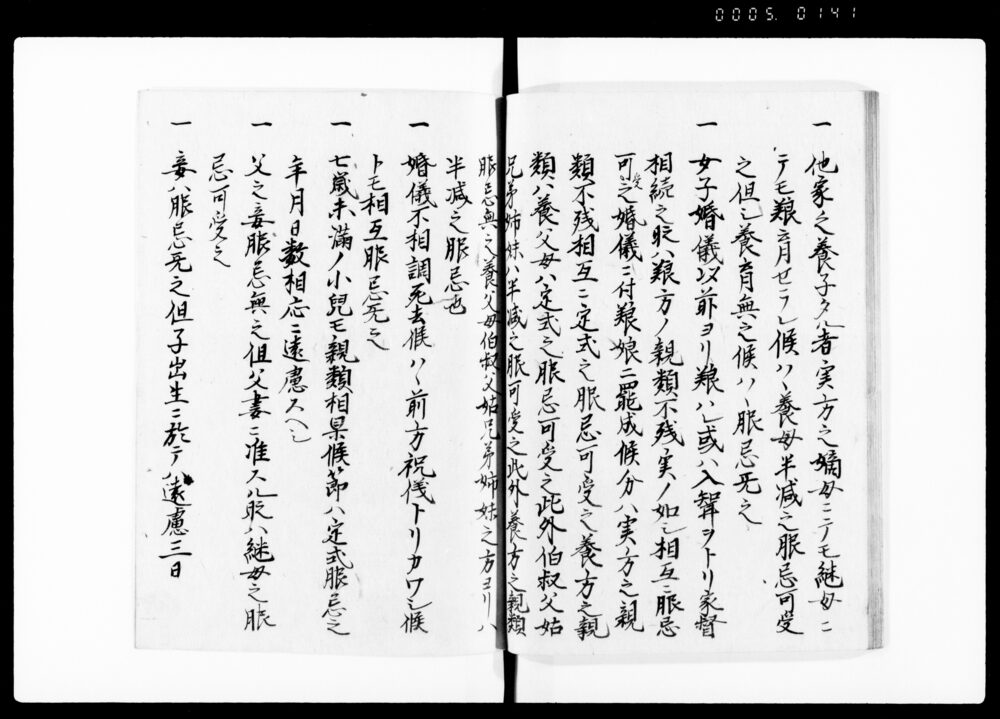 0005. 0141
一 他家之養子タル者実方之嫡母ニテモ継母ニ
テモ娘ニ月セラレ候ハヽ養母半減之服忌可受
之但シ養育無之候ハヽ服忌无之
一 女子婚儀以前ヨリ娘ハレ或ハ入聟ヲトリ家督
相続之段ハ娘方ノ親類不残実ノ如シ相互ニ服忌
可受之婚儀ニ付娘娘ニ罷成候分ハ実方之親
類不残相互ニ定式之服忌可受之養方之親
類ハ養父母ハ定式之服忌可受之此外伯叔父姑
兄弟姉妹ハ半減之服可受之此外養方之親類
服忌無之養父母伯叔父姑兄弟姉妹之方ヨリハ
半減之服忌也
一 婚儀不相調死去候ハヽ前方祝儀トリカワシ候
トモ相互服忌无之
一 七歳未満ノ小兒モ親類相果候節ハ定式服忌之
年月日数相応ニ遠慮スヘシ
一 父之妾服忌無之但父妻ニ准スル段ハ継母之服
忌可受之
一 妾ハ服忌无之但子出生ニ於テハ遠慮三日